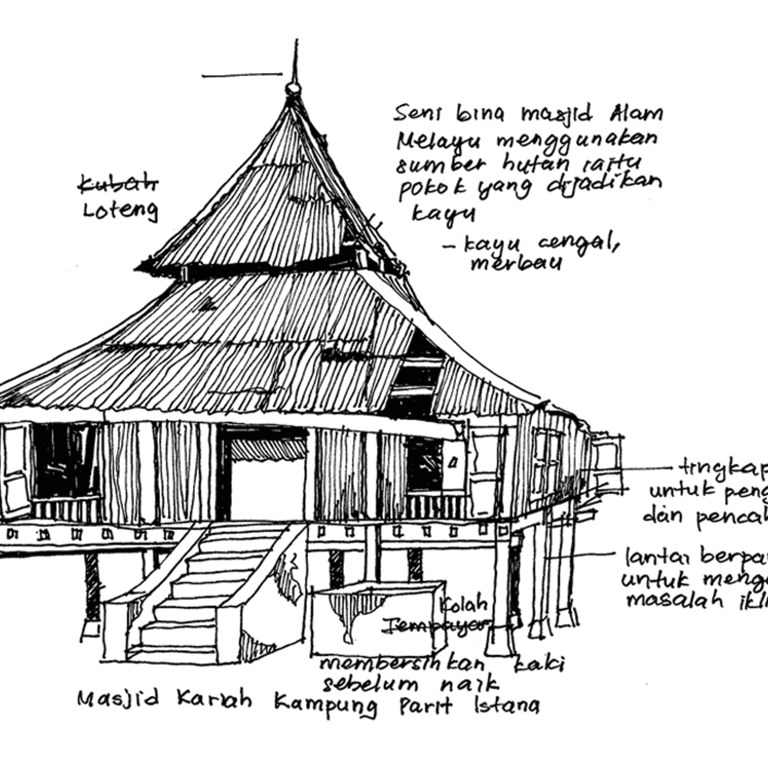 Seni bina masjid Alam
Melayu menggunakan
sumber hutan iaitu
pokok yang dijadikan
kayu
- kayu cengal,
merbau
Kubah
Loteng
tingkap
untuk peng
dan pencah
lantai berpa
untuk menga
masalah ikl
Kolah
Tempayan
membersihkan kaki
sebelum naik
Masjid Kariah Kampung Parit Istana